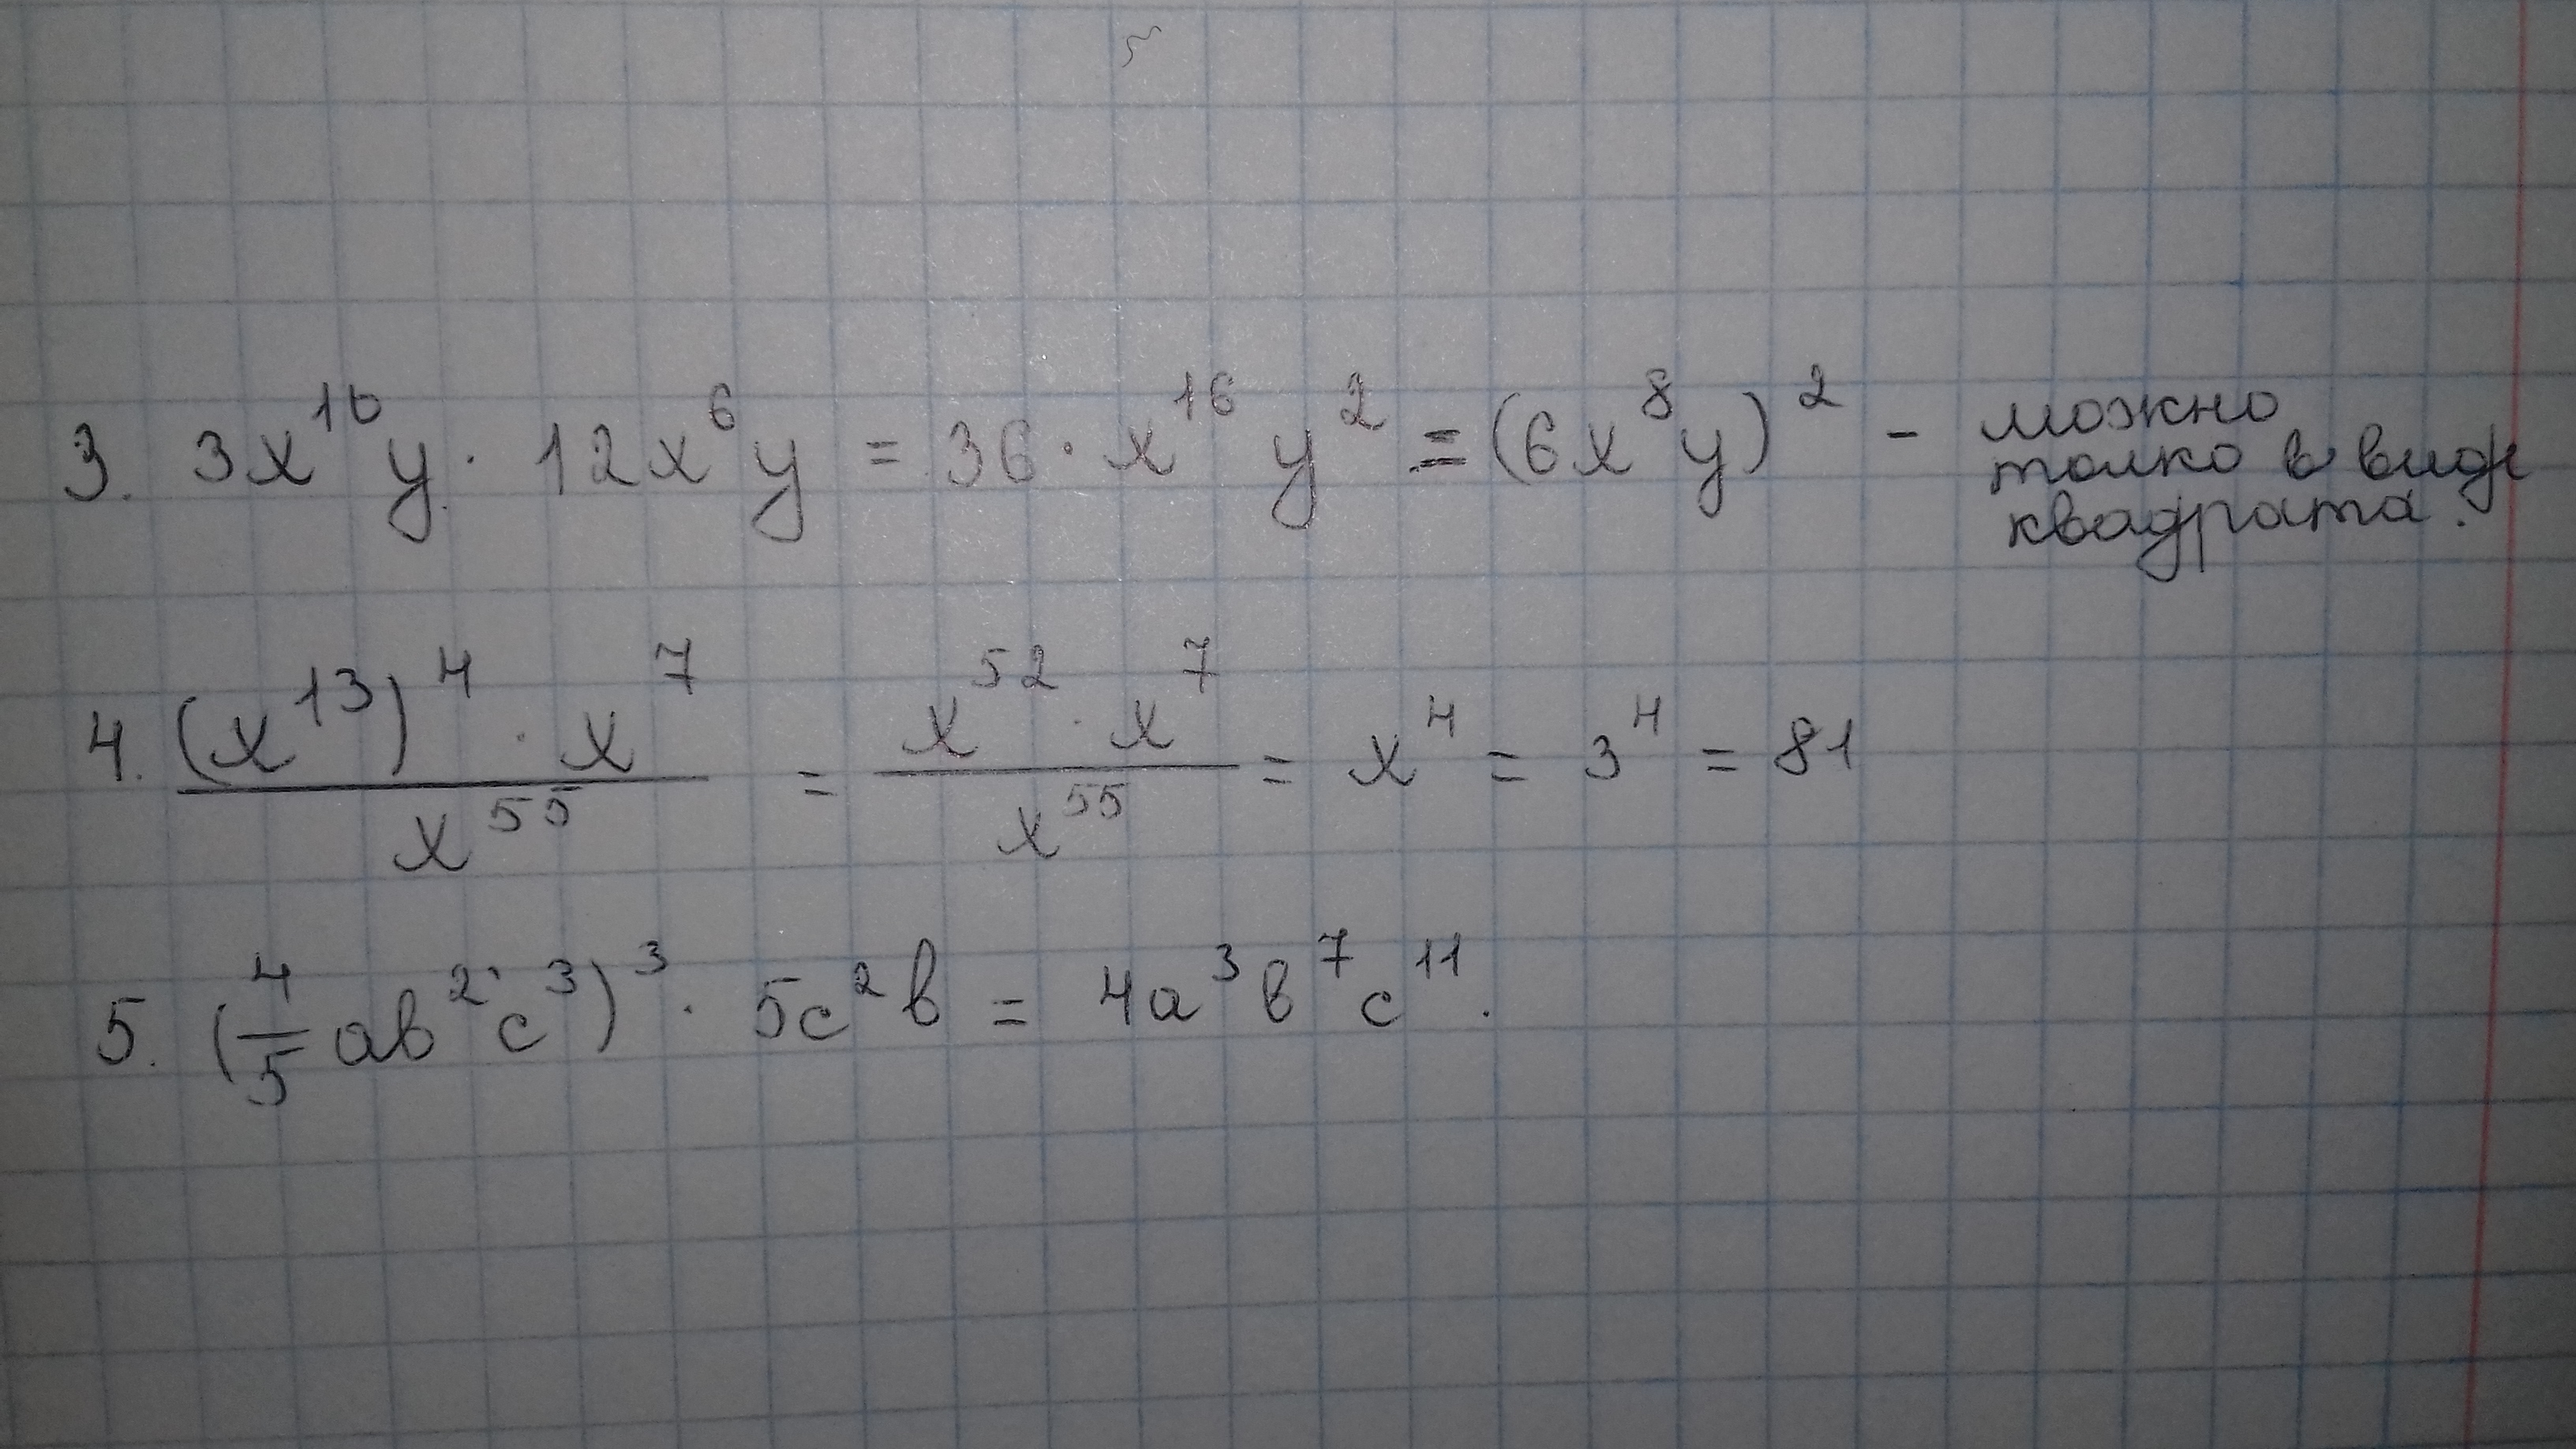 3. 3x¹⁰y · 12x⁶y = 36 · x¹⁶y² = (6x⁸y)² - можно
толко в виде
квадрата.
4. (x¹³)⁴ · x⁷ / x⁵⁵ = x⁵² · x⁷ / x⁵⁵ = x⁴ = 3⁴ = 81
5. (4/5 ab²c³)³ · 5c²b = 4a³b⁷c¹¹.